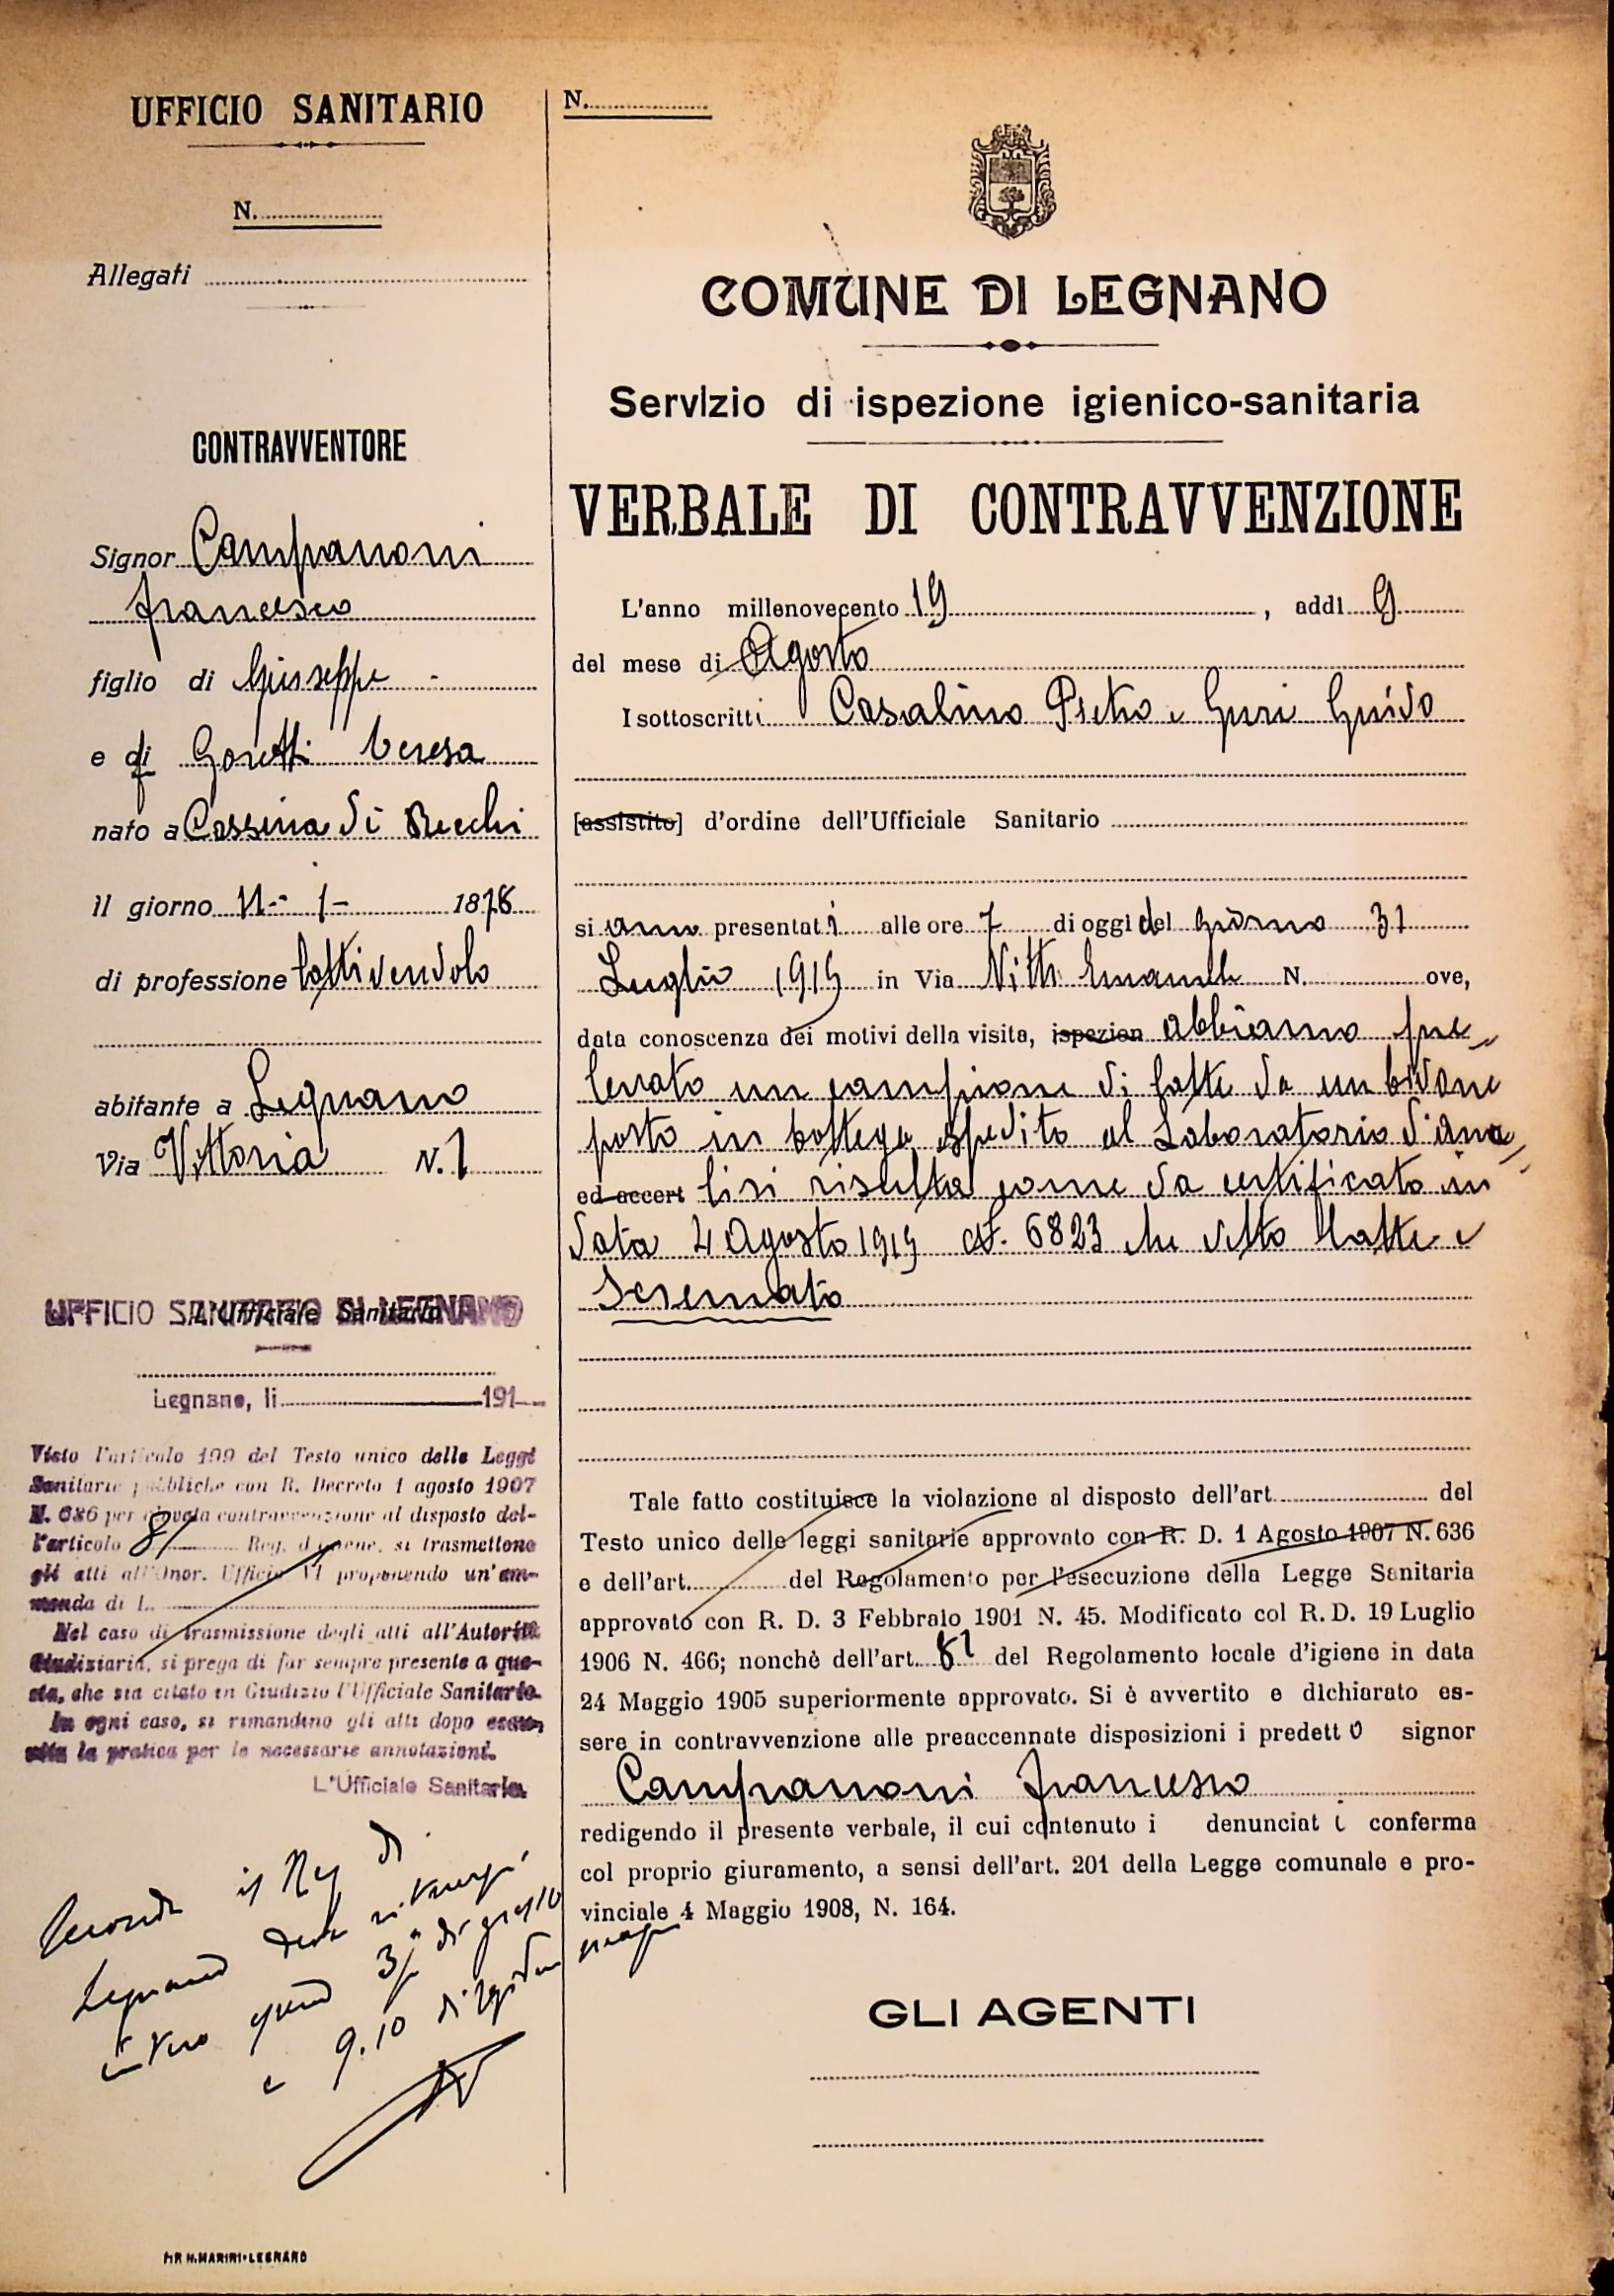 UFFICIO SANITARIO
N.
Allegati
CONTRAVVENTORE
Signor Campanoni
Francesco
figlio di Giuseppe
e di Goretti Teresa
nato a Cassina di Pecchi
il giorno 11 - 1 - 1878
di professione lattivendolo
abitante a Legnano
Via Vittoria N. 1
UFFICIO SANITARIO DI LEGNANO
L'Ufficiale Sanitario
Legnano, li 191
Visto l'articolo 199 del Testo unico delle Leggi
Sanitarie pubbliche con R. Decreto 1 agosto 1907
N. 636 per provata contravvenzione al disposto del-
l'articolo 81 Reg. d'igiene, si trasmettono
gli atti all'Onor. Ufficio VI proponendo un'am-
menda di L.
Nel caso di trasmissione degli atti all'Autorità
Giudiziaria, si prega di far sempre presente a que-
sta, che sia citato in Giudizio l'Ufficiale Sanitario.
In ogni caso, si rimandino gli atti dopo esau-
rita la pratica per le necessarie annotazioni.
L'Ufficiale Sanitario
il Reg di
Legnano
3% di grasso
e 9.10 di
magro
TIP. N. MARINI-LEGNANO
N.
COMUNE DI LEGNANO
Servizio di ispezione igienico-sanitaria
VERBALE DI CONTRAVVENZIONE
L'anno millenovecento 19, addì 9
del mese di Agosto
I sottoscritti Casalino Pietro e Guri Guido
[assistito] d'ordine dell'Ufficiale Sanitario
si anno presentati alle ore 7 di oggi del giorno 31
Luglio 1919 in Via Vitt. Emanuele N. ove,
data conoscenza dei motivi della visita, ispezion abbiamo pre
levato un campione di latte da un bidone
posto in bottega spedito al Laboratorio d'ana
ed accert lisi risulta come da certificato in
data 4 Agosto 1919 N. 6823 che detto latte è
Scremato
Tale fatto costituisce la violazione al disposto dell'art. del
Testo unico delle leggi sanitarie approvato con R. D. 1 Agosto 1907 N. 636
e dell'art. del Regolamento per l'esecuzione della Legge Sanitaria
approvato con R. D. 3 Febbraio 1901 N. 45. Modificato col R. D. 19 Luglio
1906 N. 466; nonchè dell'art. 81 del Regolamento locale d'igiene in data
24 Maggio 1905 superiormente approvato. Si è avvertito e dichiarato es-
sere in contravvenzione alle preaccennate disposizioni i predetto signor
Campanoni Francesco
redigendo il presente verbale, il cui contenuto i denunciati conferma
col proprio giuramento, a sensi dell'art. 201 della Legge comunale e pro-
vinciale 4 Maggio 1908, N. 164.
GLI AGENTI